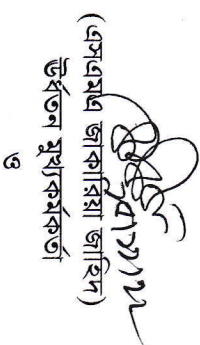 (এসএমএ জাকারিয়া জাহিদ)
উর্ধতন মূখ্যকর্মকর্তা
ও